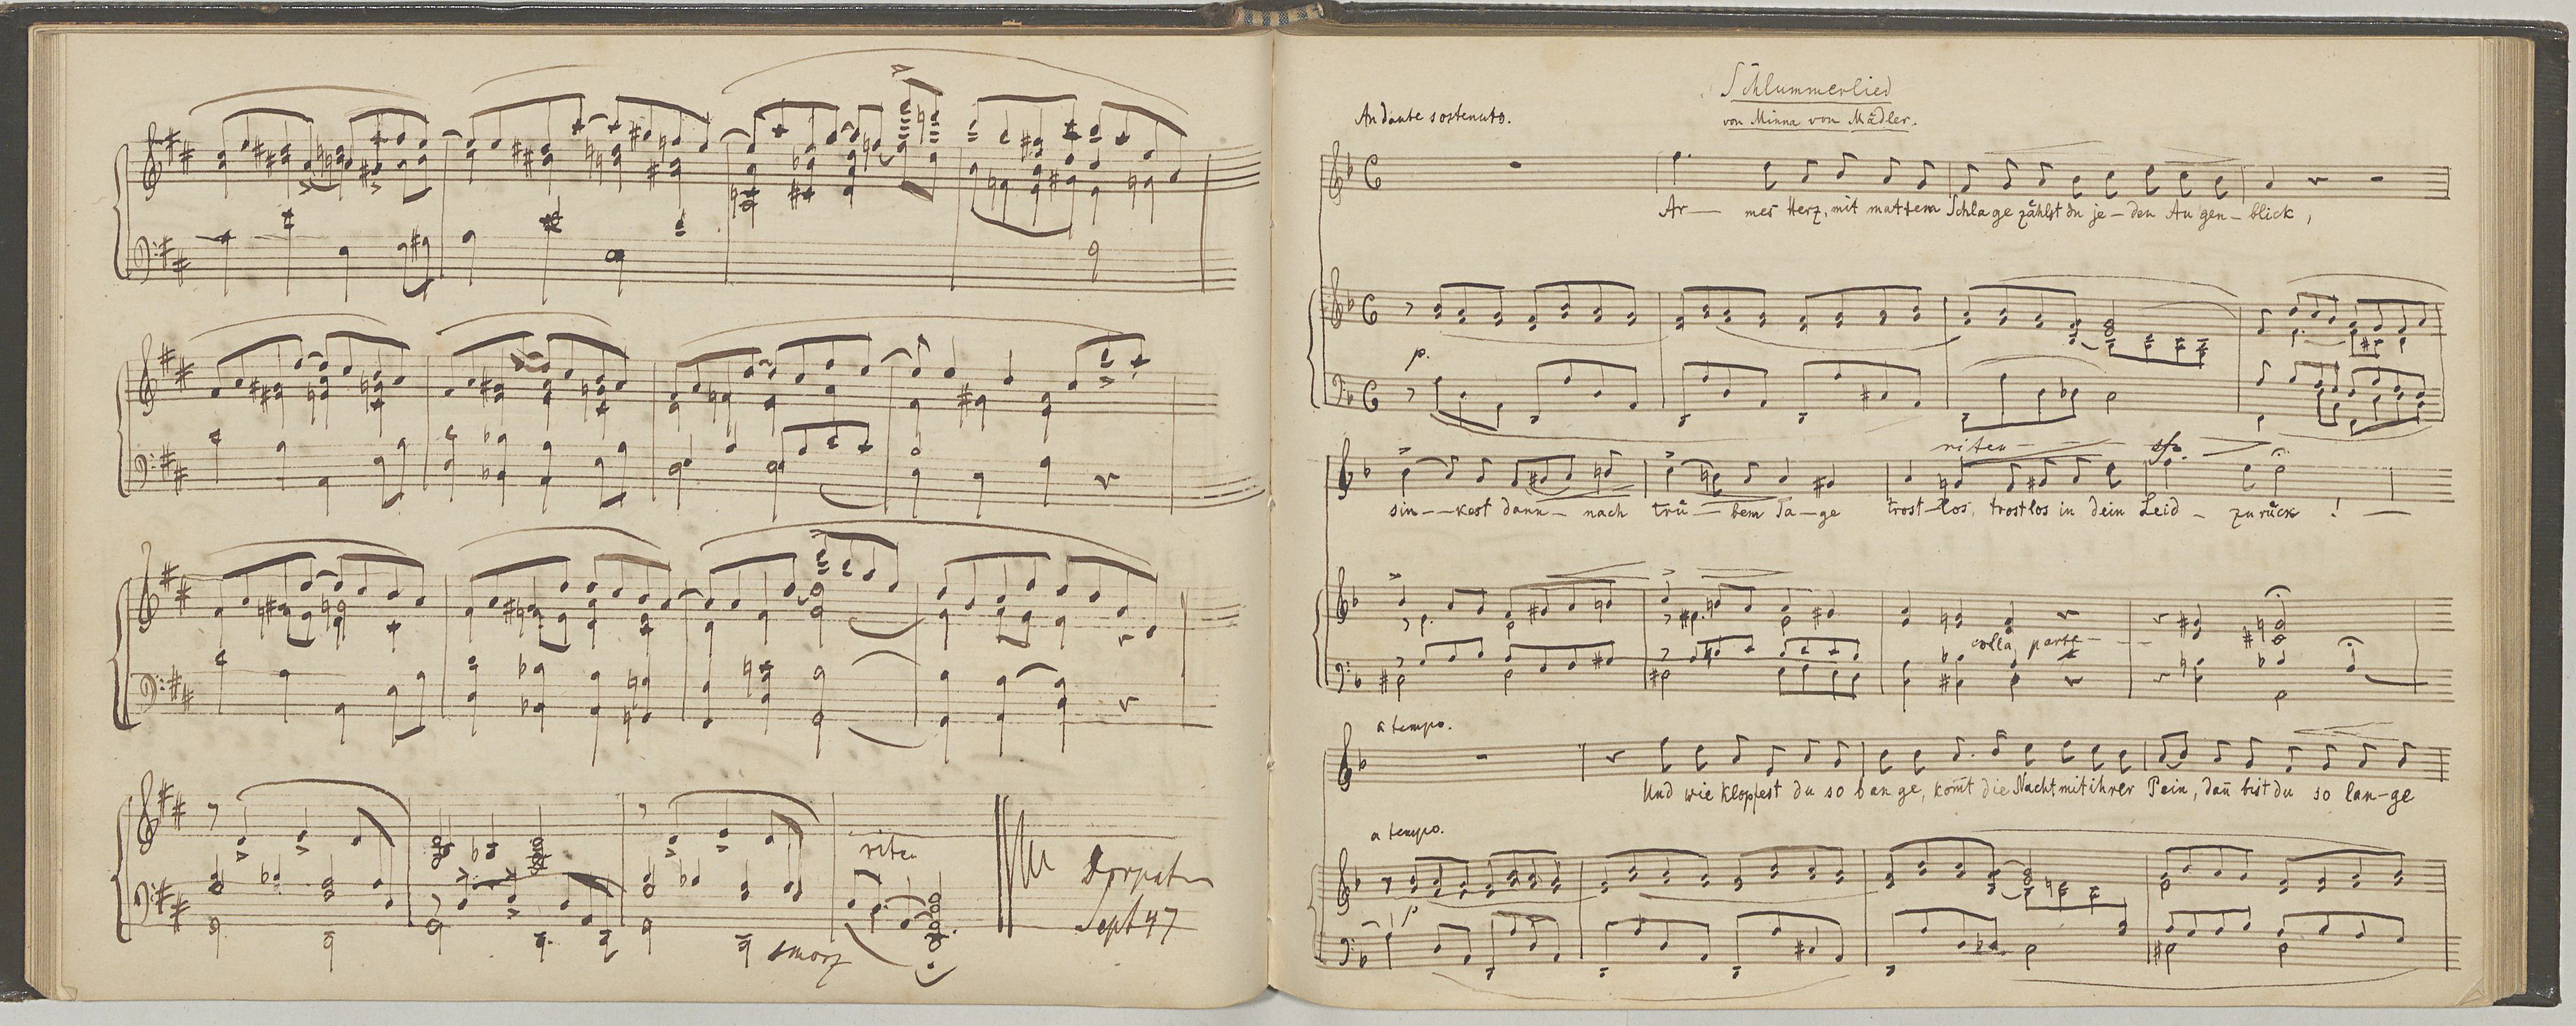 riten
smorz
Dorpat
Sept 47
Schlummerlied
von Minna von Mädler.
Andante sostenuto.
Ar— mes Herz, mit mattem Schlage zählst du je–den Augen–blick,
p.
riten — sfz.
sin––kest dann– nach trü–bem Ta–ge trost–los, trostlos in dein Leid – zurück! —
colla parte
a tempo.
Und wie klopfest du so bange, kom̅t die Nacht mit ihrer Pein, dan̅ bist du so lan–ge
a tempo.
p